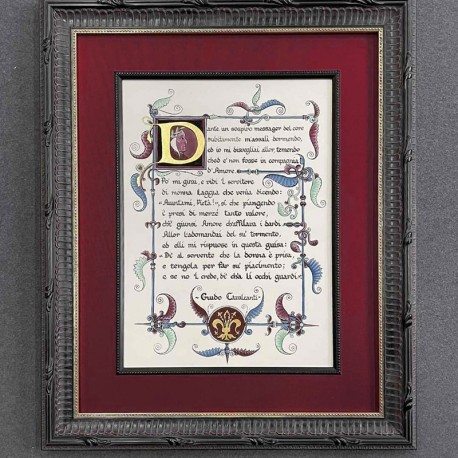 Dante un sospiro messager del core
subitamente m'assalì dormendo,
ed io mi disvegliai allor, temendo
ched e' non fosse in compagnia
d'Amore.
Po' mi girai, e vidi 'l servitore
di monna Lagia che venia dicendo:
«Aiutami, Pietà!», sì che piangendo
i' presi di merzé tanto valore,
ch'i' giunsi Amore ch'affilava i dardi.
Allor l'adomandai del su' tormento,
ed elli mi rispuose in questa guisa:
«Dì al servente che la donna è prisa,
e tengola per far su' piacimento;
e se no 'l crede, dì ch'a li occhi guardi».
- Guido Cavalcanti -